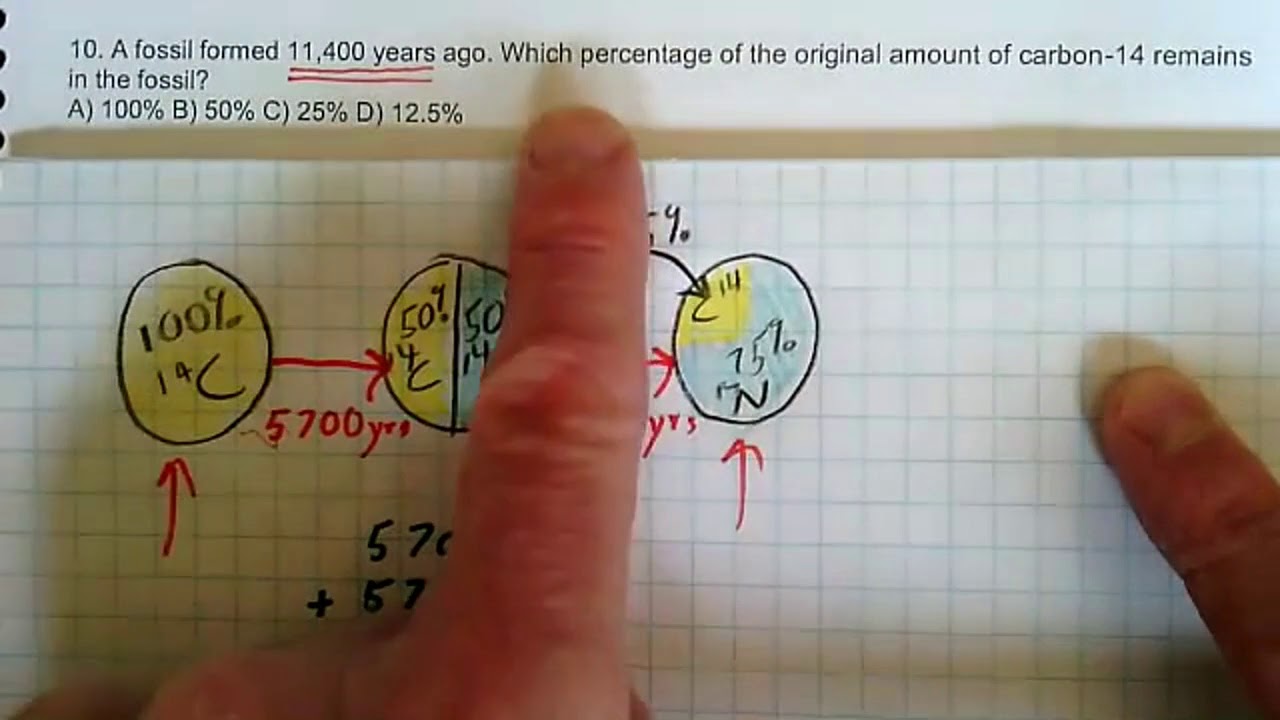 10. A fossil formed 11,400 years ago. Which percentage of the original amount of carbon-14 remains
in the fossil?
A) 100% B) 50% C) 25% D) 12.5%
100% 50% 50 C14
14C 14C 14 75%
N
5700yrs yrs
570
+ 57